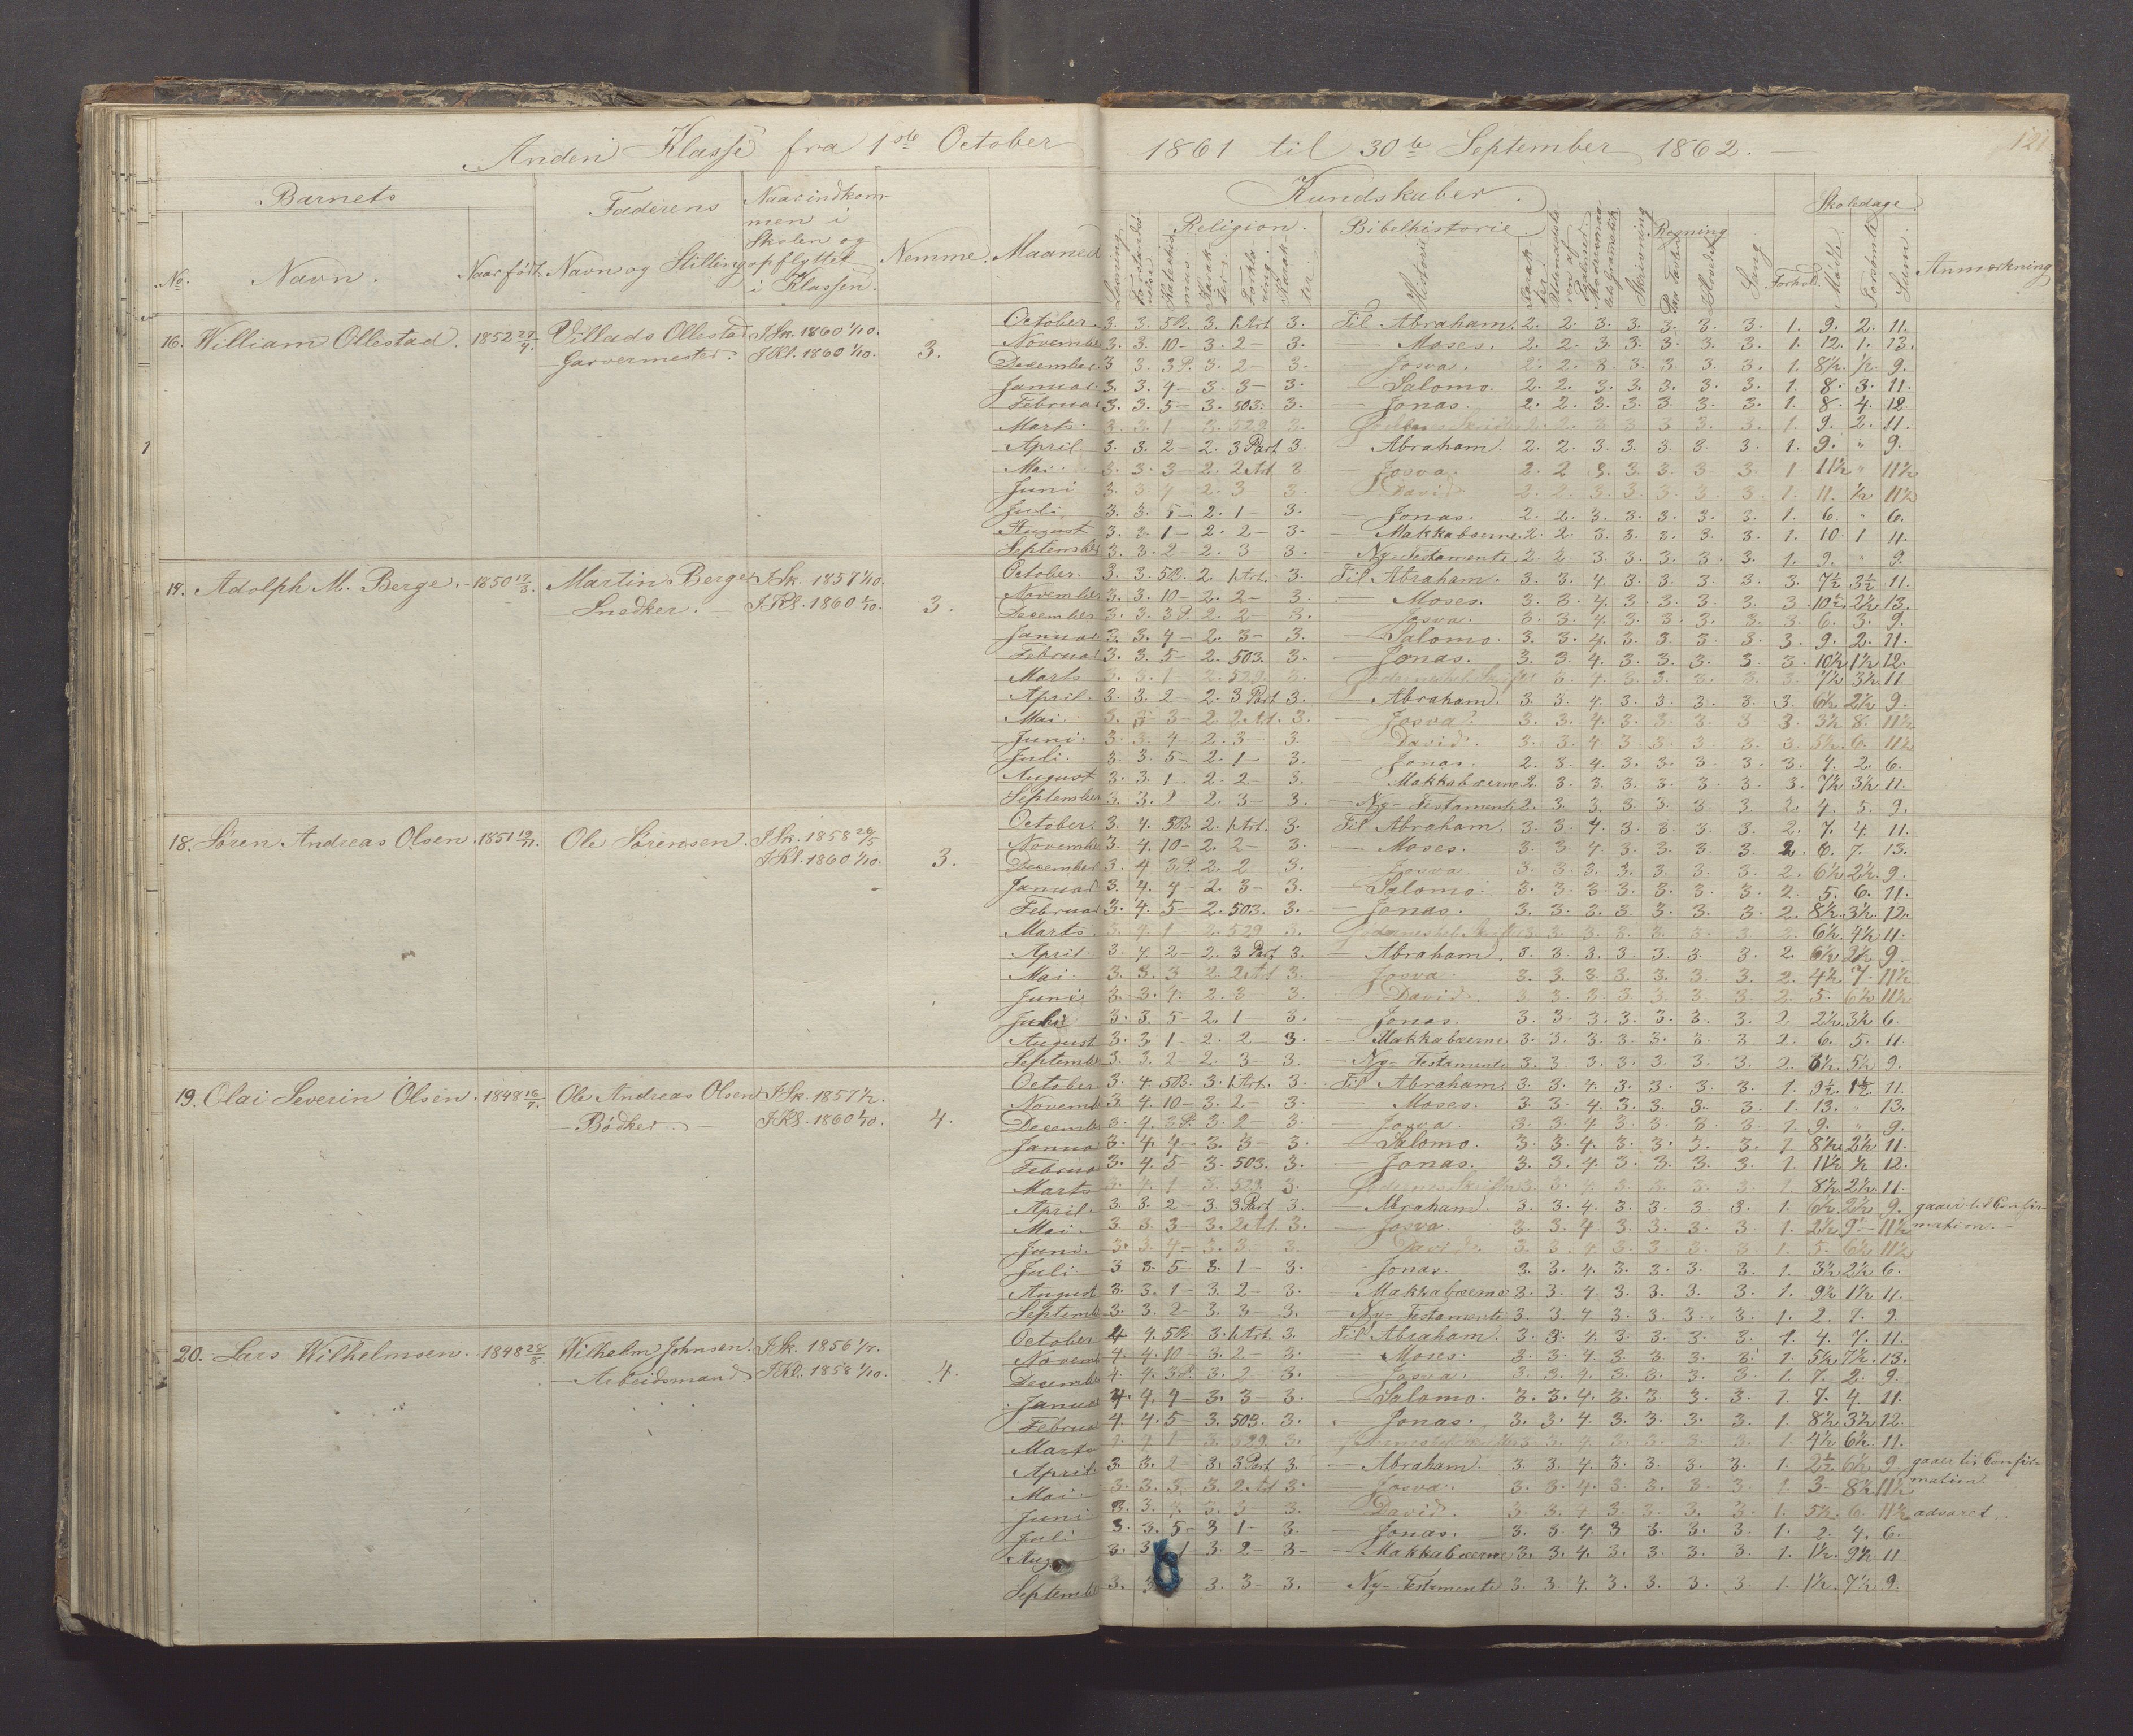 Anden Klasse fra 1ste October 1861 til 30te September 1862.
121
Barnets
Faderens
Naar indkom-
men i
Skolen og
opflyttet
i Klassen.
Nemme.
Maaned
Kundskaber.
Skoledage
No.
Navn.
Naar født
Navn og Stilling
Religion.
Bibelhistorie.
Regning
Sang
Forhold
Mødte
Forsømte
Sum.
Anmærkning
16. William Ollestad. 1852 Villads Ollestad J Sk. 1860 1/10.
Garvermester. J Kl. 1860 1/10. 3.
October. 3. 3. 5B. 3. 1 Art. 3. Til Abraham. 2. 2. 3. 3. 3. 3. 3. 1. 9. 2. 11.
November 3. 3. 10- 3. 2- 3. — Moses. 2. 2. 3. 3. 3. 3. 3. 1. 12. 1. 13.
December 3 3. 3P. 3. 2- 3. — Josva. 2. 2. 3. 3. 3. 3. 3. 1. 8½. ½. 9.
Januar. 3. 3. 4- 3. 3- 3. — Salomo. 2. 2. 3. 3. 3. 3. 3. 1. 8. 3. 11.
Februar 3. 3. 5- 3. 503. 3. — Jonas. 2. 2. 3. 3. 3. 3. 3. 1. 8. 4. 12.
Marts. 3. 3. 1- 3. 529. 3. 2. 2. 3. 3. 3. 3. 3. 1. 9. 2. 11.
April 3. 3. 2- 2. 3 Part 3. — Abraham. 2. 2. 3. 3. 3. 3. 3. 1. 9. " 9.
Mai. 3. 3. 3- 2. 2 Art 3. — Josva. 2. 2 3. 3. 3. 3. 3. 1 11½ " 11½
Juni 3. 3 4- 2. 3 3. — David. 2. 2. 3. 3. 3. 3. 3. 1. 11. ½ 11½
Juli. 3. 3. 5- 2. 1- 3. — Jonas. 2. 2. 3. 3. 3. 3. 3. 1. 6. " 6.
August 3. 3. 1- 2. 2- 3. — Makkabæerne. 2. 2. 3. 3. 3. 3. 3. 1. 10. 1 11.
September 3. 3. 2- 2. 3 3. — Ny-Testamente. 2. 2. 3. 3. 3. 3. 3. 1. 9. " 9.
17. Adolph M. Berge. 1850 17/3. Martin Berge J Sk. 1857 1/10.
Snedker. J Kl. 1860 1/10. 3.
October. 3. 3. 5B. 2. 1 Art. 3. Til Abraham. 3. 3. 4. 3. 3. 3. 3. 3. 7½ 3½ 11.
November 3. 3. 10- 2. 2- 3. — Moses. 3. 3. 4. 3. 3. 3. 3. 3. 10½. 2½. 13.
December 3. 3. 3P. 2. 2- 3. — Josva. 3. 3. 4. 3. 3. 3. 3. 3. 6. 3. 9.
Januar 3. 3. 4- 2. 3- 3. — Salomo. 3. 3. 4. 3. 3. 3. 3. 3. 9. 2. 11.
Februar 3. 3. 5- 2. 503. 3. — Jonas. 3. 3. 4. 3. 3. 3. 3. 3. 10½ 1½. 12.
Marts 3. 3. 1- 2. 529. 3. 3. 4. 3. 3. 3. 3. 3. 7½ 3½ 11
April. 3. 3. 2- 2. 3 Part 3. — Abraham. 3. 3. 4. 3. 3. 3. 3. 3. 6½ 2½ 9.
Mai. 3. 3 3- 2. 2 Art. 3. — Josva. 3. 3. 4. 3. 3. 3. 3 3. 3½ 8. 11½
Juni. 3. 3. 4- 2. 3- 3. — David. 3. 3. 4. 3. 3. 3. 3. 3. 5½. 6. 11½
Juli. 3. 3. 5- 2. 1- 3. — Jonas. 2. 3. 4. 3. 3. 3. 3. 3. 4. 2. 6.
August 3. 3. 1- 2. 2- 3. — Makkabæerne 2. 3. 3. 3. 3. 3. 3. 3. 7½ 3½ 11.
September 3. 3. 2 2. 3- 3. — Ny-Testamente 2. 3. 3. 3. 3. 3. 3. 2. 4. 5. 9.
18. Søren Andreas Olsen. 1851 19/11. Ole Sørensen. J Sk. 1858 29/5
J Kl. 1860 1/10. 3.
October. 3. 4. 5B. 2. 1 Art. 3. Til Abraham. 3. 3. 4. 3. 3. 3. 3. 2. 7. 4. 11.
November 3. 4. 10- 2. 2- 3. — Moses. 3. 3. 4. 3. 3. 3. 3. 2. 6. 7. 13.
December 3. 4 3P. 2. 2 3. — Josva. 3. 3. 3. 3. 3. 3. 3. 2. 6½ 2½. 9.
Januar 3. 4. 4- 2. 3- 3. — Salomo. 3. 3. 3. 3. 3. 3. 3. 2. 5. 6. 11.
Februar 3. 4. 5- 2. 503. 3. — Jonas. 3. 3. 3. 3. 3. 3. 3. 2. 8½. 3½. 12.
Marts 3. 4. 1 2. 529 3. 3. 3. 3. 3. 3. 3. 3. 2. 6½. 4½ 11.
April. 3. 4. 2- 2. 3 Part 3. — Abraham. 3. 3. 3. 3. 3. 3. 3. 2. 6½ 2½ 9.
Mai 3. 3. 3 2. 2 Art 3. — Josva. 3. 3. 3. 3. 3. 3. 3. 2. 4½. 7. 11½
Juni 3. 3. 4- 2. 3 3. — David. 3. 3. 3. 3. 3. 3. 3 2. 5. 6½ 11½
Juli 3. 3. 5- 2. 1 3. — Jonas. 3. 3. 3. 3. 3. 3. 3. 2. 2½. 3½ 6.
August 3. 3. 1- 2. 2 3. — Makkabæerne 3. 3. 3. 3. 3. 3. 3 2. 6. 5. 11.
September 3. 3. 2- 2. 3- 3. — Ny-Testamente 3. 3. 3. 3. 3. 3. 3. 2. 5½. 9.
19. Olai Severin Olsen. 1848 Ole Andreas Olsen J Sk. 1857 1/2.
Bødker. J Kl. 1860 1/10. 4.
October. 3. 4. 5B. 3. 1 Art. 3. Til Abraham. 3. 3. 4. 3. 3. 3. 3. 1. 9½. 1½. 11.
Novemb 3. 4. 10- 3. 2- 3. — Moses. 3. 3. 4. 3. 3. 3. 3. 1. 13. " 13.
Decemb 3. 4. 3P. 3. 2- 3. — Josva. 3. 3. 4. 3. 3. 3. 3. 1. 9. " 9.
Janua 3. 4. 4- 3. 3- 3. — Salomo. 3. 3. 4. 3. 3. 3. 3. 1. 8½. 2½. 11.
Februa 3. 4. 5- 3. 503. 3. — Jonas. 3. 3. 4. 3. 3. 3. 3. 1. 11½ ½ 12.
Marts 3. 4. 1- 3. 529. 3. 3. 3. 4. 3. 3. 3. 3. 1. 8½. 2½. 11.
April. 3. 3. 2- 3. 3 Part 3. — Abraham. 3. 3. 4. 3. 3. 3. 3. 1. 6½. 2½ 9. gaaer til Confir-
Mai. 3. 3. 3- 3. 2 Art. 3. — Josva. 3. 3. 4 3. 3. 3. 3 1. 2½ 9. 11½ mation.
Juni. 3. 3. 4- 3. 3- 3. — David. 3. 3. 4 3. 3. 3. 3 1. 5. 6½ 11½
Juli 3 3. 5- 3. 1- 3. — Jonas. 3. 3. 4. 3. 3. 3. 3. 1. 3½ 2½ 6.
August 3. 3. 1- 3. 2- 3. — Makkabæerne 3. 3. 4. 3. 3. 3. 3. 1. 9½ 1½ 11.
Septemb 3. 3. 2 3. 3- 3. — Ny-Testamente 3. 3. 4 3. 3. 3. 3. 1. 2. 7. 9.
20. Lars Wilhelmsen. 1848 28/8. Wilhelm Johnsen. J Sk. 1856
Arbeidsmand. J Kl. 1858 1/10. 4.
October 4 4. 5B. 3. 1 Art. 3. Til Abraham. 3. 3. 4. 3. 3. 3. 3. 1. 4. 7. 11.
Novemb 4. 4. 10- 3. 2- 3. — Moses. 3. 3. 4. 3. 3. 3. 3. 1. 5½ 7½. 13.
Decembe 4. 4. 3P. 3. 2 3. — Josva. 3. 3. 4. 3. 3. 3. 3. 1. 7. 2. 9.
Janua 4. 4. 4- 3. 3- 3. — Salomo. 3. 3. 4. 3. 3 3. 3. 1 7. 4. 11.
Februa 4. 4. 5- 3. 503. 3. — Jonas. 3. 3. 4. 3. 3. 3. 3. 1. 8½ 3½ 12.
Marts 4. 4. 1- 3. 529. 3. 3 3. 4. 3. 3. 3. 3. 1. 4½ 6½ 11.
April. 3. 3. 2- 3. 3 Part 3. — Abraham. 3. 3. 4. 3. 3. 3. 3. 1. 2½ 6½ 9. gaaer til Confir-
Mai. 3. 3. 3. 3. 2 Art 3. — Josva. 3. 3. 4. 3. 3. 3. 3 1. 3- 8½ 11½ mation.
Juni 3. 3. 3. 3 3. — David. 3. 3. 4 3. 3. 3. 3. 1. 5½. 6. 11½ advaret.
Juli 3. 3. 5- 3 1- 3. — Jonas. 3. 3. 4. 3 3. 3. 3. 1. 2. 4. 6.
Aug 3. 3 1- 3. 2- 3- — Makkabæerne 3. 3. 4. 3. 3. 3. 3. 1. 1½. 9½ 11
Septembe 3. 3 3. 3- 3. — Ny-Testamente 3. 3. 4. 3. 3. 3. 3. 1. 1½. 7½ 9.